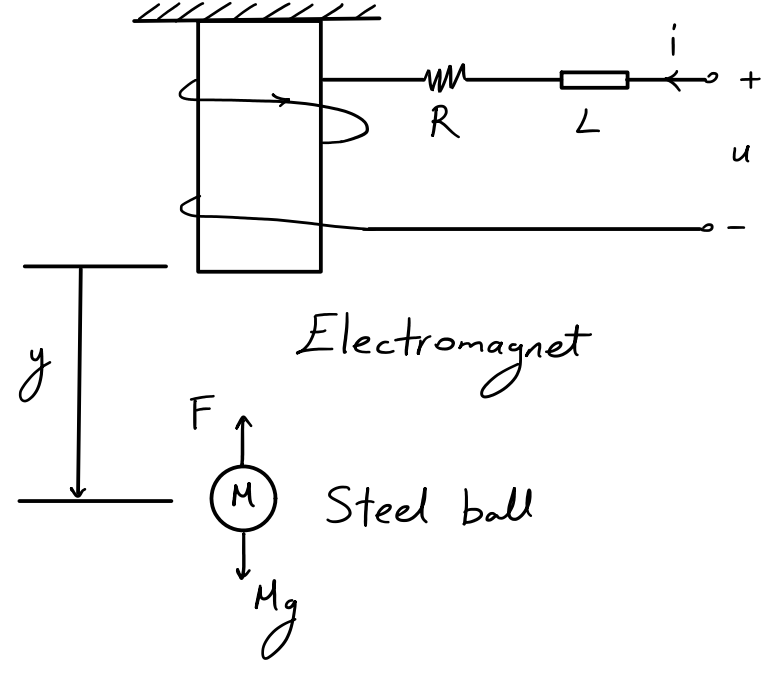 i
+
R
L
u
-
Electromagnet
y
F
M
Steel ball
Mg